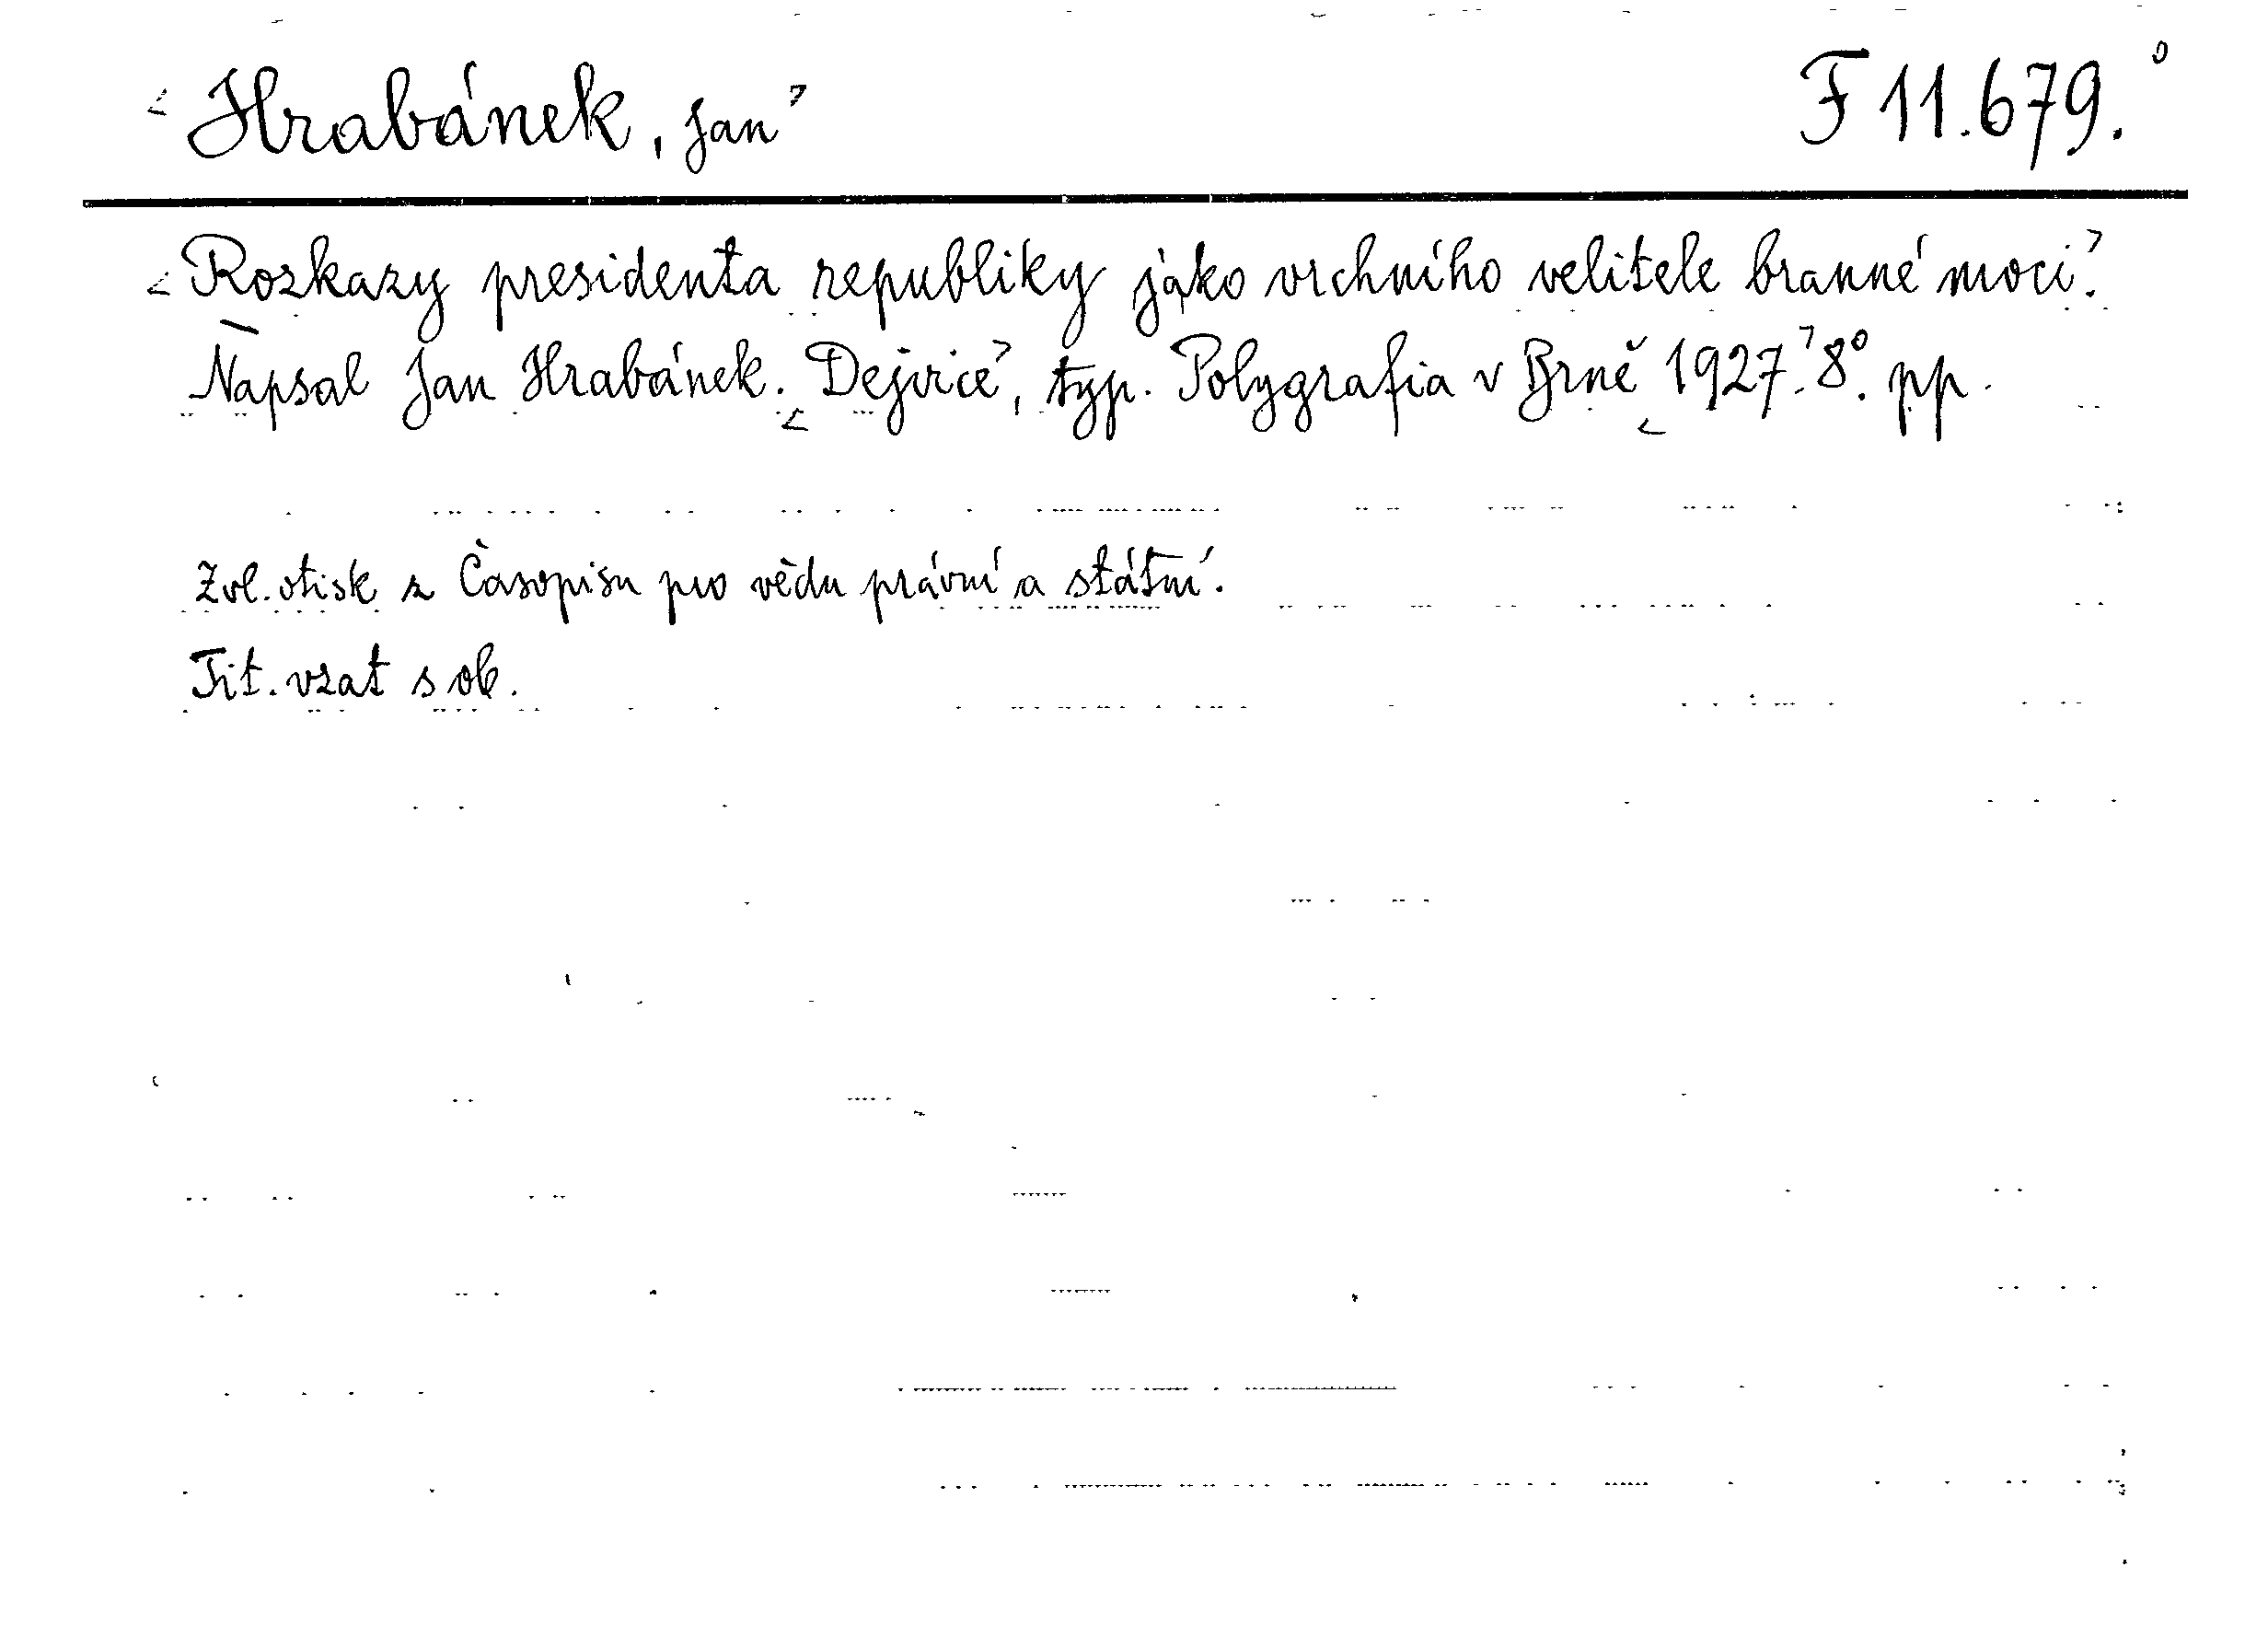 Hrabánek, Jan F 11.679.
Rozkazy presidenta republiky jako vrchního velitele branné moci.
Napsal Jan Hrabánek. Dejvice, typ. Polygrafia v Brně 1927. 8°. pp.
Zvl. otisk z Časopisu pro vědu právní a státní.
Tit. vzat s ob.